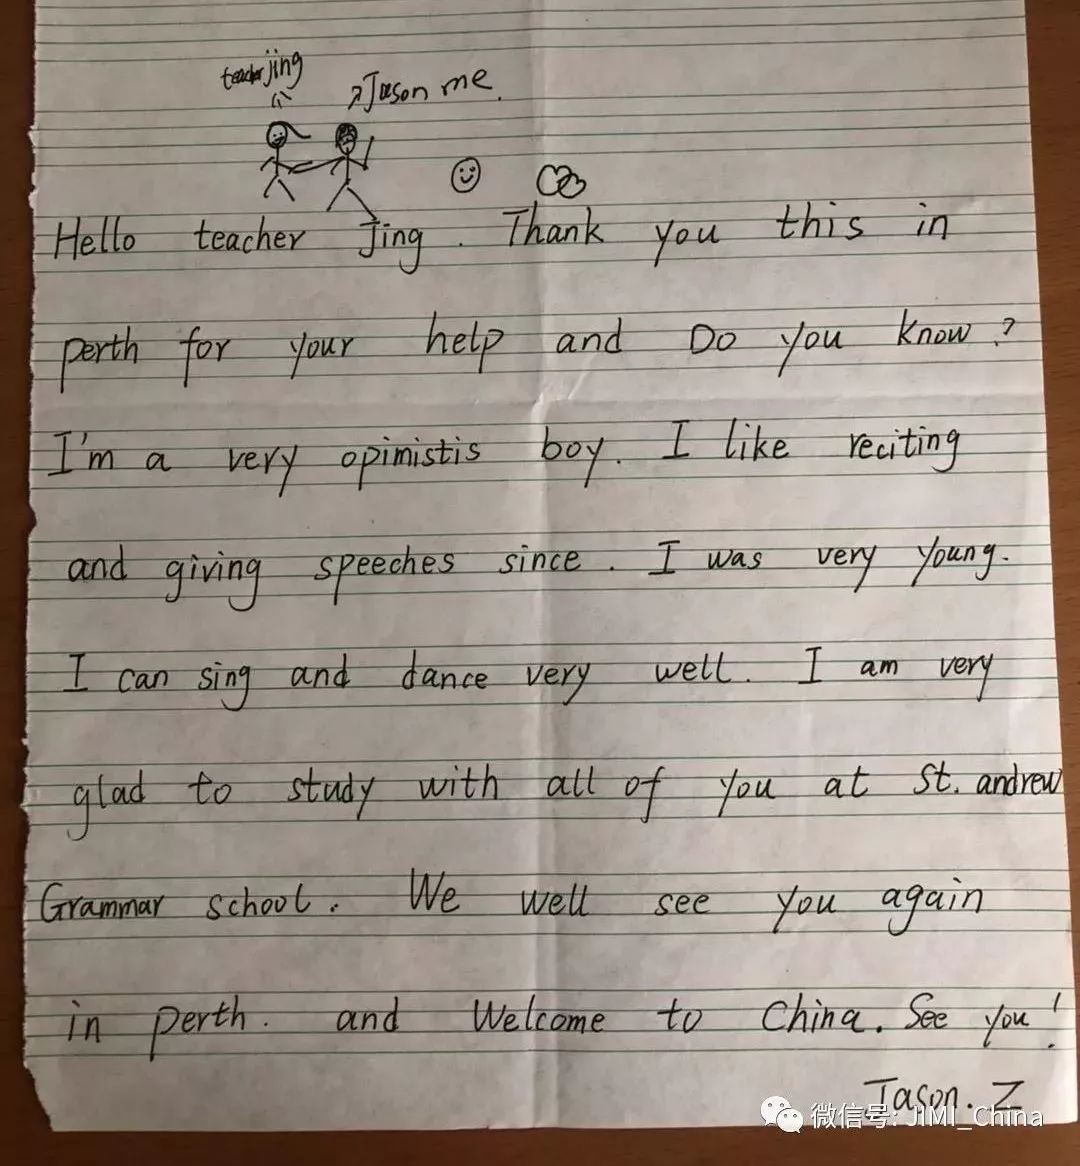 teacher jing
Jason me.
Hello teacher Jing. Thank you this in
perth for your help and Do you know?
I'm a very opimistis boy. I like reciting
and giving speeches since. I was very young.
I can sing and dance very well. I am very
glad to study with all of you at St. andrew
Grammar school. We well see you again
in perth. and Welcome to China. See you!
Jason. Z
微信号: JIMI_China